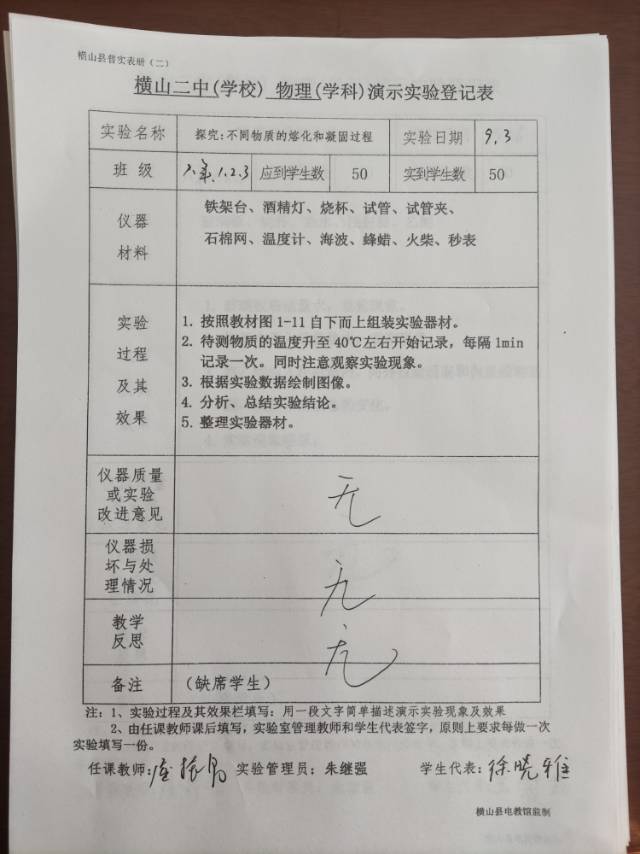 横山县普实表册（二）
横山二中(学校) 物理(学科)演示实验登记表
实验名称 探究:不同物质的熔化和凝固过程 实验日期 9.3
班 级 八年.1.2.3 应到学生数 50 实到学生数 50
仪器 材料
铁架台、酒精灯、烧杯、试管、试管夹、
石棉网、温度计、海波、蜂蜡、火柴、秒表
实验 过程 及其 效果
1. 按照教材图1-11自下而上组装实验器材。
2. 待测物质的温度升至40℃左右开始记录，每隔1min
记录一次。同时注意观察实验现象。
3. 根据实验数据绘制图像。
4. 分析、总结实验结论。
5. 整理实验器材。
仪器质量
或实验
改进意见
无
仪器损
坏与处
理情况
无
教学
反思
无
备注 （缺席学生）
注：1、实验过程及其效果栏填写：用一段文字简单描述演示实验现象及效果
2、由任课教师课后填写，实验室管理教师和学生代表签字，原则上要求每做一次
实验填写一份。
任课教师: 实验管理员：朱继强 学生代表: 徐晓雅
横山县电教馆监制